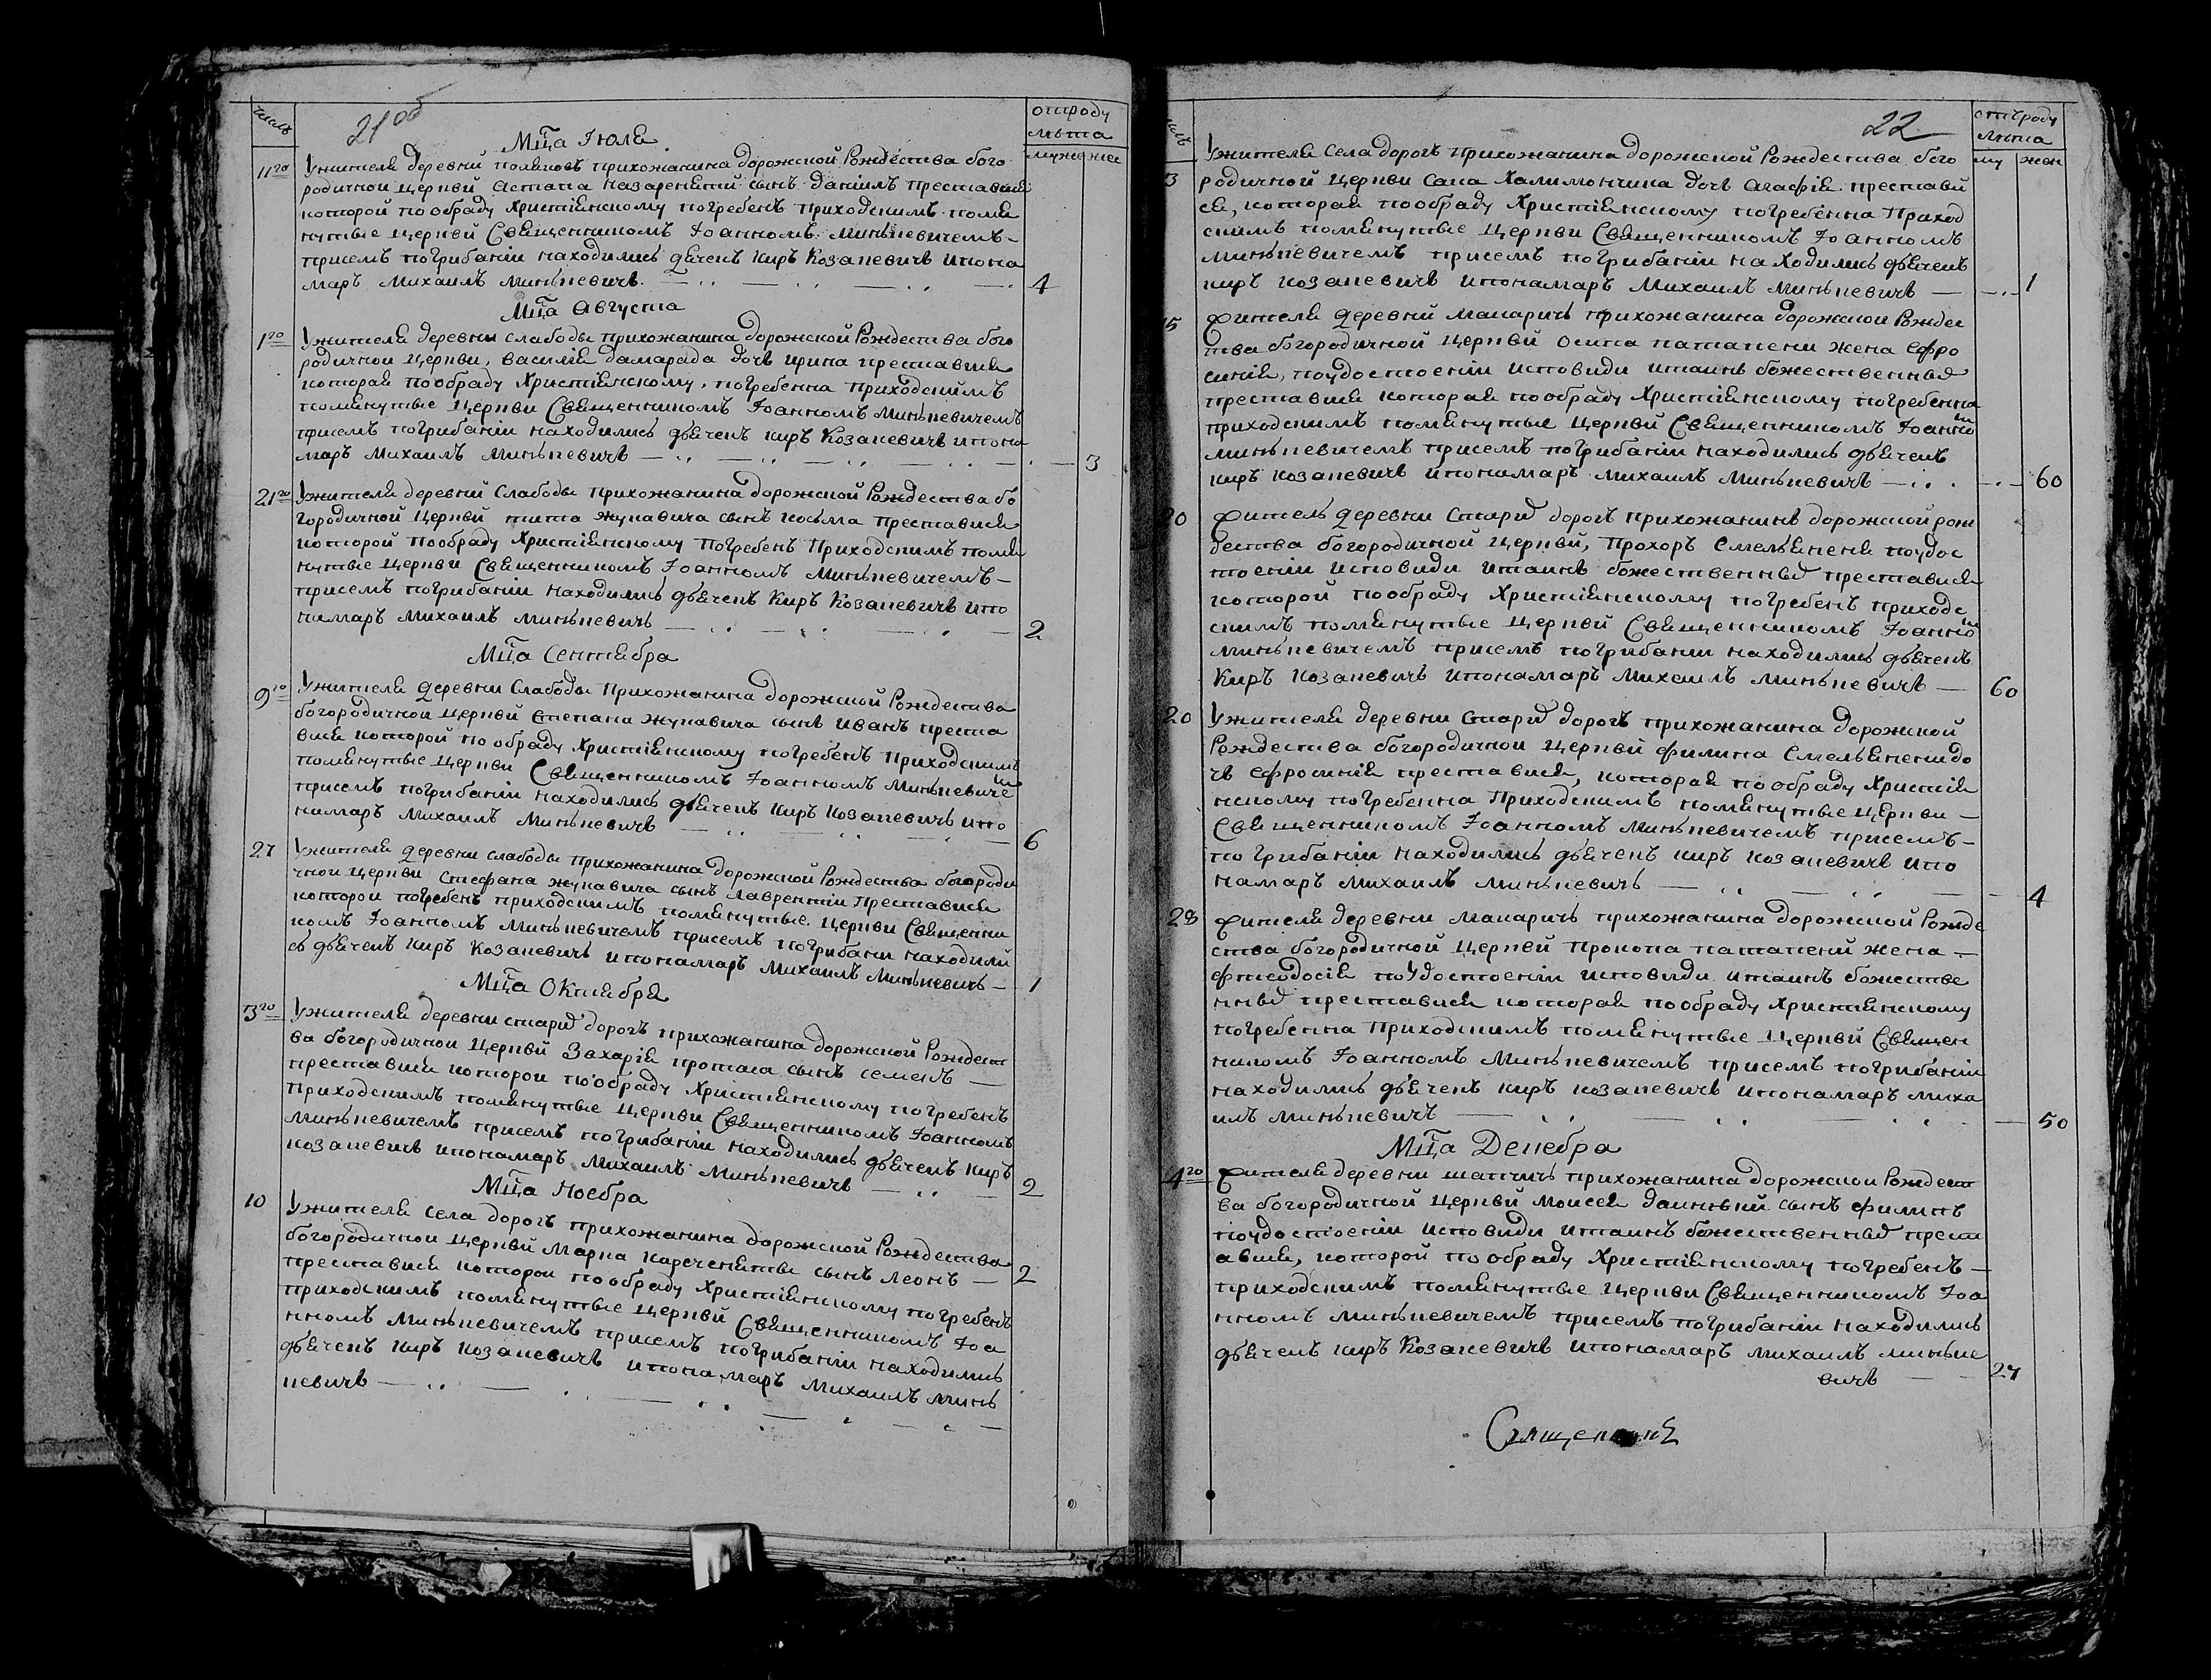 число
21 об
отроду
лѣта
муж жен
Мц̃а Июля
11го Ужителя деревни поляновъ прихожанина дорожской Рождества бого
родичной церкви астапа назаренятй сынъ данiилъ преставися
которой пообряду христiянскому погребенъ приходскимъ помя
нутые церкви Священникомъ Iоанномъ минькевичемъ
присемъ погрибанiи находились дьячекъ киръ Козакевичъ ипоно
маръ михаилъ минькевичъ 4
Мц̃а Августа
1го Ужителя деревни слабоды прихожанина дорожской Рождества бого
родичной церкви, василя дамарада дочь ирина преставися
которая пообряду христiянскому, погребенна приходскимъ
помянутые церкви Священникомъ Iоанномъ минькевичемъ
присемъ погрибанiи находились дьячекъ киръ Козакевичъ ипоно
маръ михаилъ минькевичъ 3
21го Ужителя деревни Слабоды прихожанина дорожской Рождества бо
городичной церкви тита жукавича сынъ косьма преставися
которой пообряду христiянскому погребенъ приходскимъ помя
нутые церкви Священникомъ Iоанномъ минькевичемъ
присемъ погрибанiи находились дьячекъ Киръ Козакевичъ ипо
намаръ михаилъ минькевичъ 2
Мц̃а Сентября
9го Ужителя деревни Слабоды прихожанина дорожской Рождества
богородичной церкви степана жукавича сынъ иванъ преста
вися которой пообряду христiянскому погребенъ приходскимъ
помянутые церкви Священникомъ Iоанномъ минькевичемъ
присемъ погрибанiи находились дьячекъ киръ козакевичъ ипо
намаръ михаилъ минькевичъ 6
27 Ужителя деревни слабоды прихожанина дорожской Рождества богороди
чной церкви стефана жукавича сынъ лаврентiи преставися
которои погребенъ приходскимъ помянутые церкви Священни
комъ Iоанномъ минькевичемъ присемъ погрибани находили
сь дьячекъ киръ козакевичъ ипонамаръ михаилъ минькевичъ 1
Мц̃а Октября
3го Ужителя деревни старых дорогъ прихожанина дорожской Рождест
ва богородичной церкви Захарiя протаса сынъ семенъ
преставися которои пообряду христiянскому погребенъ
приходскимъ помянутые церкви Священникомъ Iоанномъ
минькевичемъ присемъ погрибанiи находились дьячекъ киръ
козакевичъ ипонамаръ михаилъ минькевичъ 2
Мц̃а Ноебра
10 Ужителя села дорогъ прихожанина дорожской Рождества
богородичной церкви марка кареченяты сынъ леонъ 2
преставися которои пообряду христiянскому погребенъ
приходскимъ помянутые церкви Священникомъ Iоа
нномъ минькевичемъ присемъ погрибанiи находились
дьячекъ киръ козакевичъ ипонамаръ михаилъ минь
кевичъ
22
отъроду
лѣта
му жен
3 Ужителя села дорогъ прихожанина дорожской Рождества бого
родичной церкви сака халимончика дочь агафiя престави
ся, которая пообряду христiянскому погребенна приход
скимъ помянутые церкви Священникомъ Iоанномъ
минькевичемъ присемъ погрибанiи находились дьячекъ
киръ козакевичъ ипонамаръ михаилъ минькевичъ 1
15 жителя деревни макаричъ прихожанина дорожской Рождес
тва богородичной церкви осипа патапени жена ефро
синiя, поудостоенiи исповиди итаинъ божественных
преставися которая пообряду христiянскому погребенна
приходскимъ помянутые церкви Священникомъ Iоанномъ
минькевичемъ присемъ погрибанiи находились дьячекъ
киръ козакевичъ ипонамаръ михаилъ минькевичъ 60
20 житель деревни старых дорогъ прихожанинъ дорожской рож
дества богородичной церкви, прохоръ емельяненя поудос
тоенiи исповиди итаинъ божественных преставися
которой пообряду христiянскому погребенъ приходс
скимъ помянутые церкви Священникомъ Iоанномъ
минькевичемъ присемъ погрибанiи находились дьячекъ
киръ козакевичъ ипонамаръ михаилъ минькевичъ 60
20 Ужителя деревни старых дорогъ прихожанина дорожской
Рождества богородичной церкви филипа емельянени до
чь ефросинiя преставися, которая пообряду христiя
нскому погребенна приходскимъ помянутые церкви
Священникомъ Iоанномъ минькевичемъ присемъ
погрибанiи находились дьячекъ киръ козакевичъ ипо
намаръ михаилъ минькевичъ 4
28 жителя деревни макаричъ прихожанина дорожской Рожде
ства богородичной церкви прокопа патапени жена
фтеодосiя поудостоенiи исповиди итаинъ божестве
нных преставися которая пообряду христiянскому
погребенна приходскимъ помянутые церкви Священ
никомъ Iоанномъ минькевичемъ присемъ погрибанiи
находились дьячекъ киръ козакевичъ ипонамаръ миха
илъ минькевичъ 50
Мц̃а Декебра
4го жителя деревни шапчичъ прихожанина дорожской Рождест
ва богородичной церкви моисея сынъ филипъ
поудостоенiи исповиди итаинъ божественных прест
ависи, которой пообряду христiянскому погребенъ
приходскимъ помянутые церкви Священникомъ Iоа
нномъ минькевичемъ присемъ погрибанiи находились
дьячекъ киръ Козакевичъ ипонамаръ михаилъ миньке
вичъ 27
Священникъ